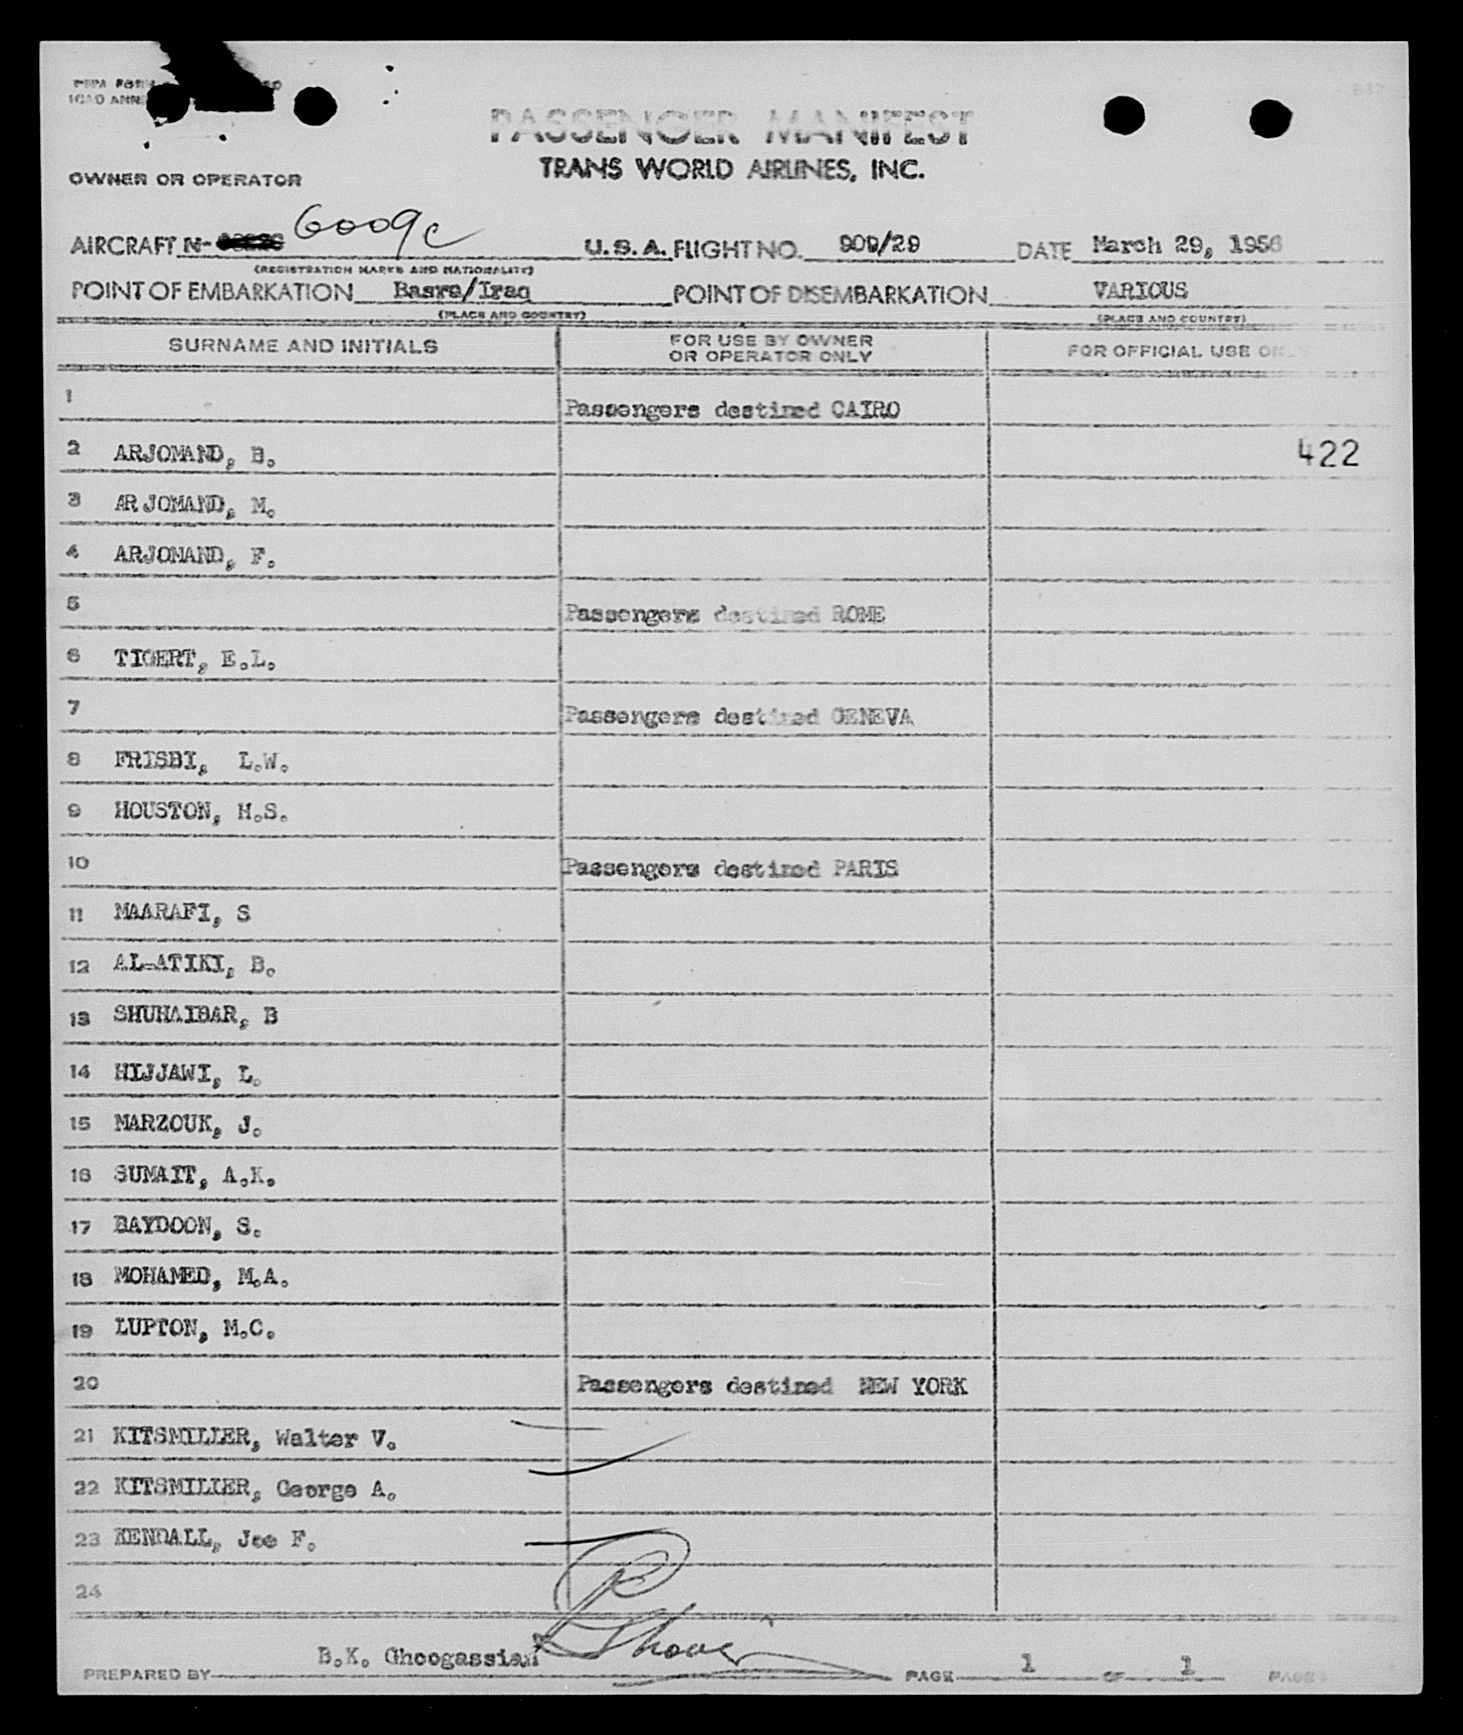 PASSENGER MANIFEST
TRANS WORLD AIRLINES, INC.
OWNER OR OPERATOR
AIRCRAFT N- 6009C U.S.A. FLIGHT NO. 909/29 DATE March 29, 1956
(REGISTRATION MARKS AND NATIONALITY)
POINT OF EMBARKATION Basra/Iraq POINT OF DISEMBARKATION VARIOUS
(PLACE AND COUNTRY) (PLACE AND COUNTRY)
SURNAME AND INITIALS FOR USE BY OWNER OR OPERATOR ONLY FOR OFFICIAL USE ONLY
1 Passengers destined CAIRO
2 ARJOMAND, B. 422
3 ARJOMAND, M.
4 ARJOMAND, F.
5 Passengers destined ROME
6 TIGERT, E.L.
7 Passengers destined GENEVA
8 FRISBI, L.W.
9 HOUSTON, H.S.
10 Passengers destined PARIS
11 MAARAFI, S
12 AL-ATIKI, B.
13 SHUHAIBAR, B
14 HIJJAWI, L.
15 MARZOUK, J.
16 SUMAIT, A.K.
17 BAYDOON, S.
18 MOHAMED, M.A.
19 LUPTON, M.C.
20 Passengers destined NEW YORK
21 KITSMILLER, Walter V.
22 KITSMILLER, George A.
23 KENDALL, Joe F.
24
PREPARED BY B.K. Ghoogassian PAGE 1 OF 1 PAGES